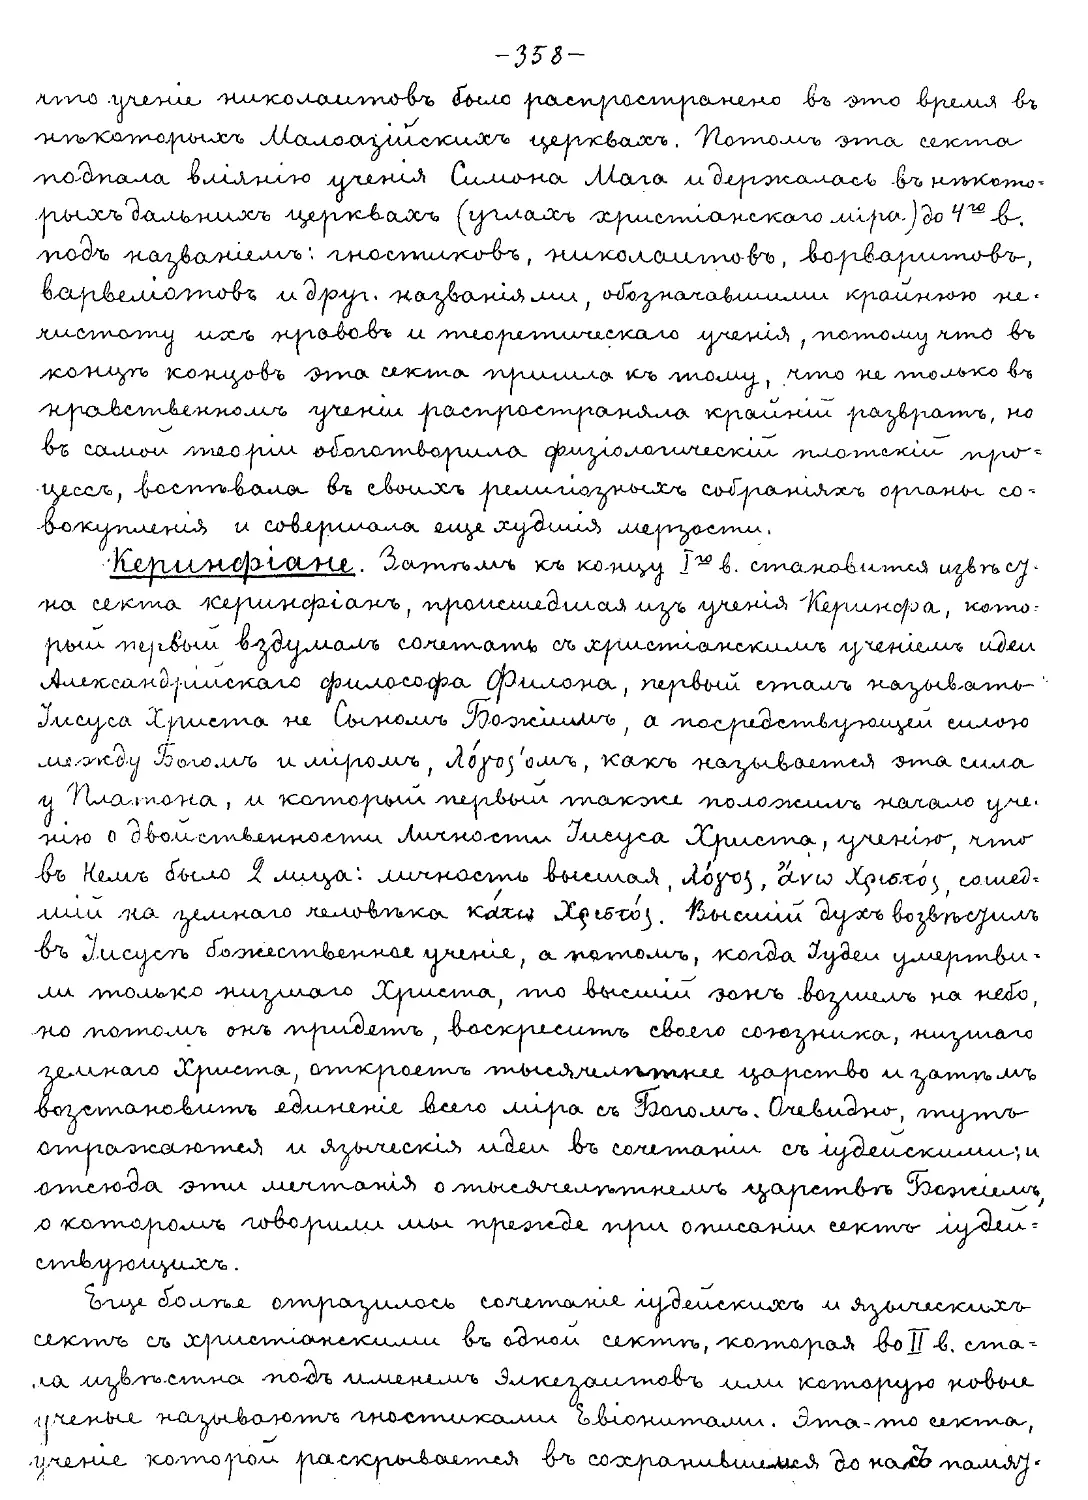 -358-
что ученіе николаитовъ было распространено въ это время въ
нѣкоторыхъ Малоазійскихъ церквахъ. Потомъ эта секта
подпала вліянію ученія Симона Мага и держалась въ нѣкото-
рыхъ дальнихъ церквахъ (углахъ христіанскаго міра) до 4го в.
подъ названіемъ: гностиковъ, николаитовъ, ворваритовъ,
варвеліотовъ и друг. названіями, обозначавшими крайнюю не-
чистоту ихъ нравовъ и теоретическаго ученія, потому что въ
концѣ концовъ эта секта пришла къ тому, что не только въ
нравственномъ ученіи распространяла крайній развратъ, но
въ самой теоріи обоготворила физіологическій плотскій про-
цессъ, воспѣвала въ своихъ религіозныхъ собраніяхъ органы со-
вокупленія и совершала еще худшія мерзости.
Керинфіане. Затѣмъ къ концу Iго в. становится извѣст-
на секта керинфіанъ, происшедшая изъ ученія Керинфа, кото-
рый первый вздумалъ сочетать съ христіанскимъ ученіемъ идеи
Александрійскаго философа Филона, первый сталъ называть
Іисуса Христа не Сыномъ Божіимъ, а посредствующей силою
между Богомъ и міромъ, Λόγος'омъ, какъ называется эта сила
у Платона, и который первый также положилъ начало уче-
нію о двойственности Личности Іисуса Христа, ученію, что
въ Немъ было 2 лица: личность высшая, Λόγος, ἄνω Χριστός, сошед-
шій на земнаго человѣка κάτω Χριστός. Высшій духъ возвѣстилъ
въ Іисусѣ божественное ученіе, а потомъ, когда Іудеи умертви-
ли только низшаго Христа, то высшій эонъ возшелъ на небо,
но потомъ онъ придетъ, воскреситъ своего союзника, низшаго
земнаго Христа, откроетъ тысячелѣтнее царство и затѣмъ
возстановитъ единеніе всего міра съ Богомъ. Очевидно, тутъ
отражаются и языческія идеи въ сочетаніи съ іудейскими; и
отсюда эти мечтанія о тысячелѣтнемъ царствѣ Божіемъ,
о которомъ говорили мы прежде при описаніи сектъ іудей-
ствующихъ.
Еще болѣе отразилось сочетаніе іудейскихъ и языческихъ
сектъ съ христіанскими въ одной сектѣ, которая во II в. ста-
ла извѣстна подъ именемъ Элкезаитовъ или которую новые
ученые называютъ гностиками Евіонитами. Эта-то секта,
ученіе которой раскрывается въ сохранившемся до насъ памят-